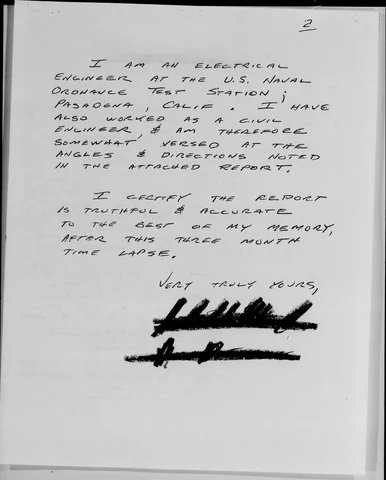 2
I AM AN ELECTRICAL
ENGINEER AT THE U.S. NAVAL
ORDNANCE TEST STATION;
PASADENA, CALIF. I HAVE
ALSO WORKED AS A CIVIL
ENGINEER, & AM THEREFORE
SOMEWHAT VERSED AT THE
ANGLES & DIRECTIONS NOTED
IN THE ATTACHED REPORT.
I CERTIFY THE REPORT
IS TRUTHFUL & ACCURATE
TO THE BEST OF MY MEMORY,
AFTER THIS THREE MONTH
TIME LAPSE.
VERY TRULY YOURS,